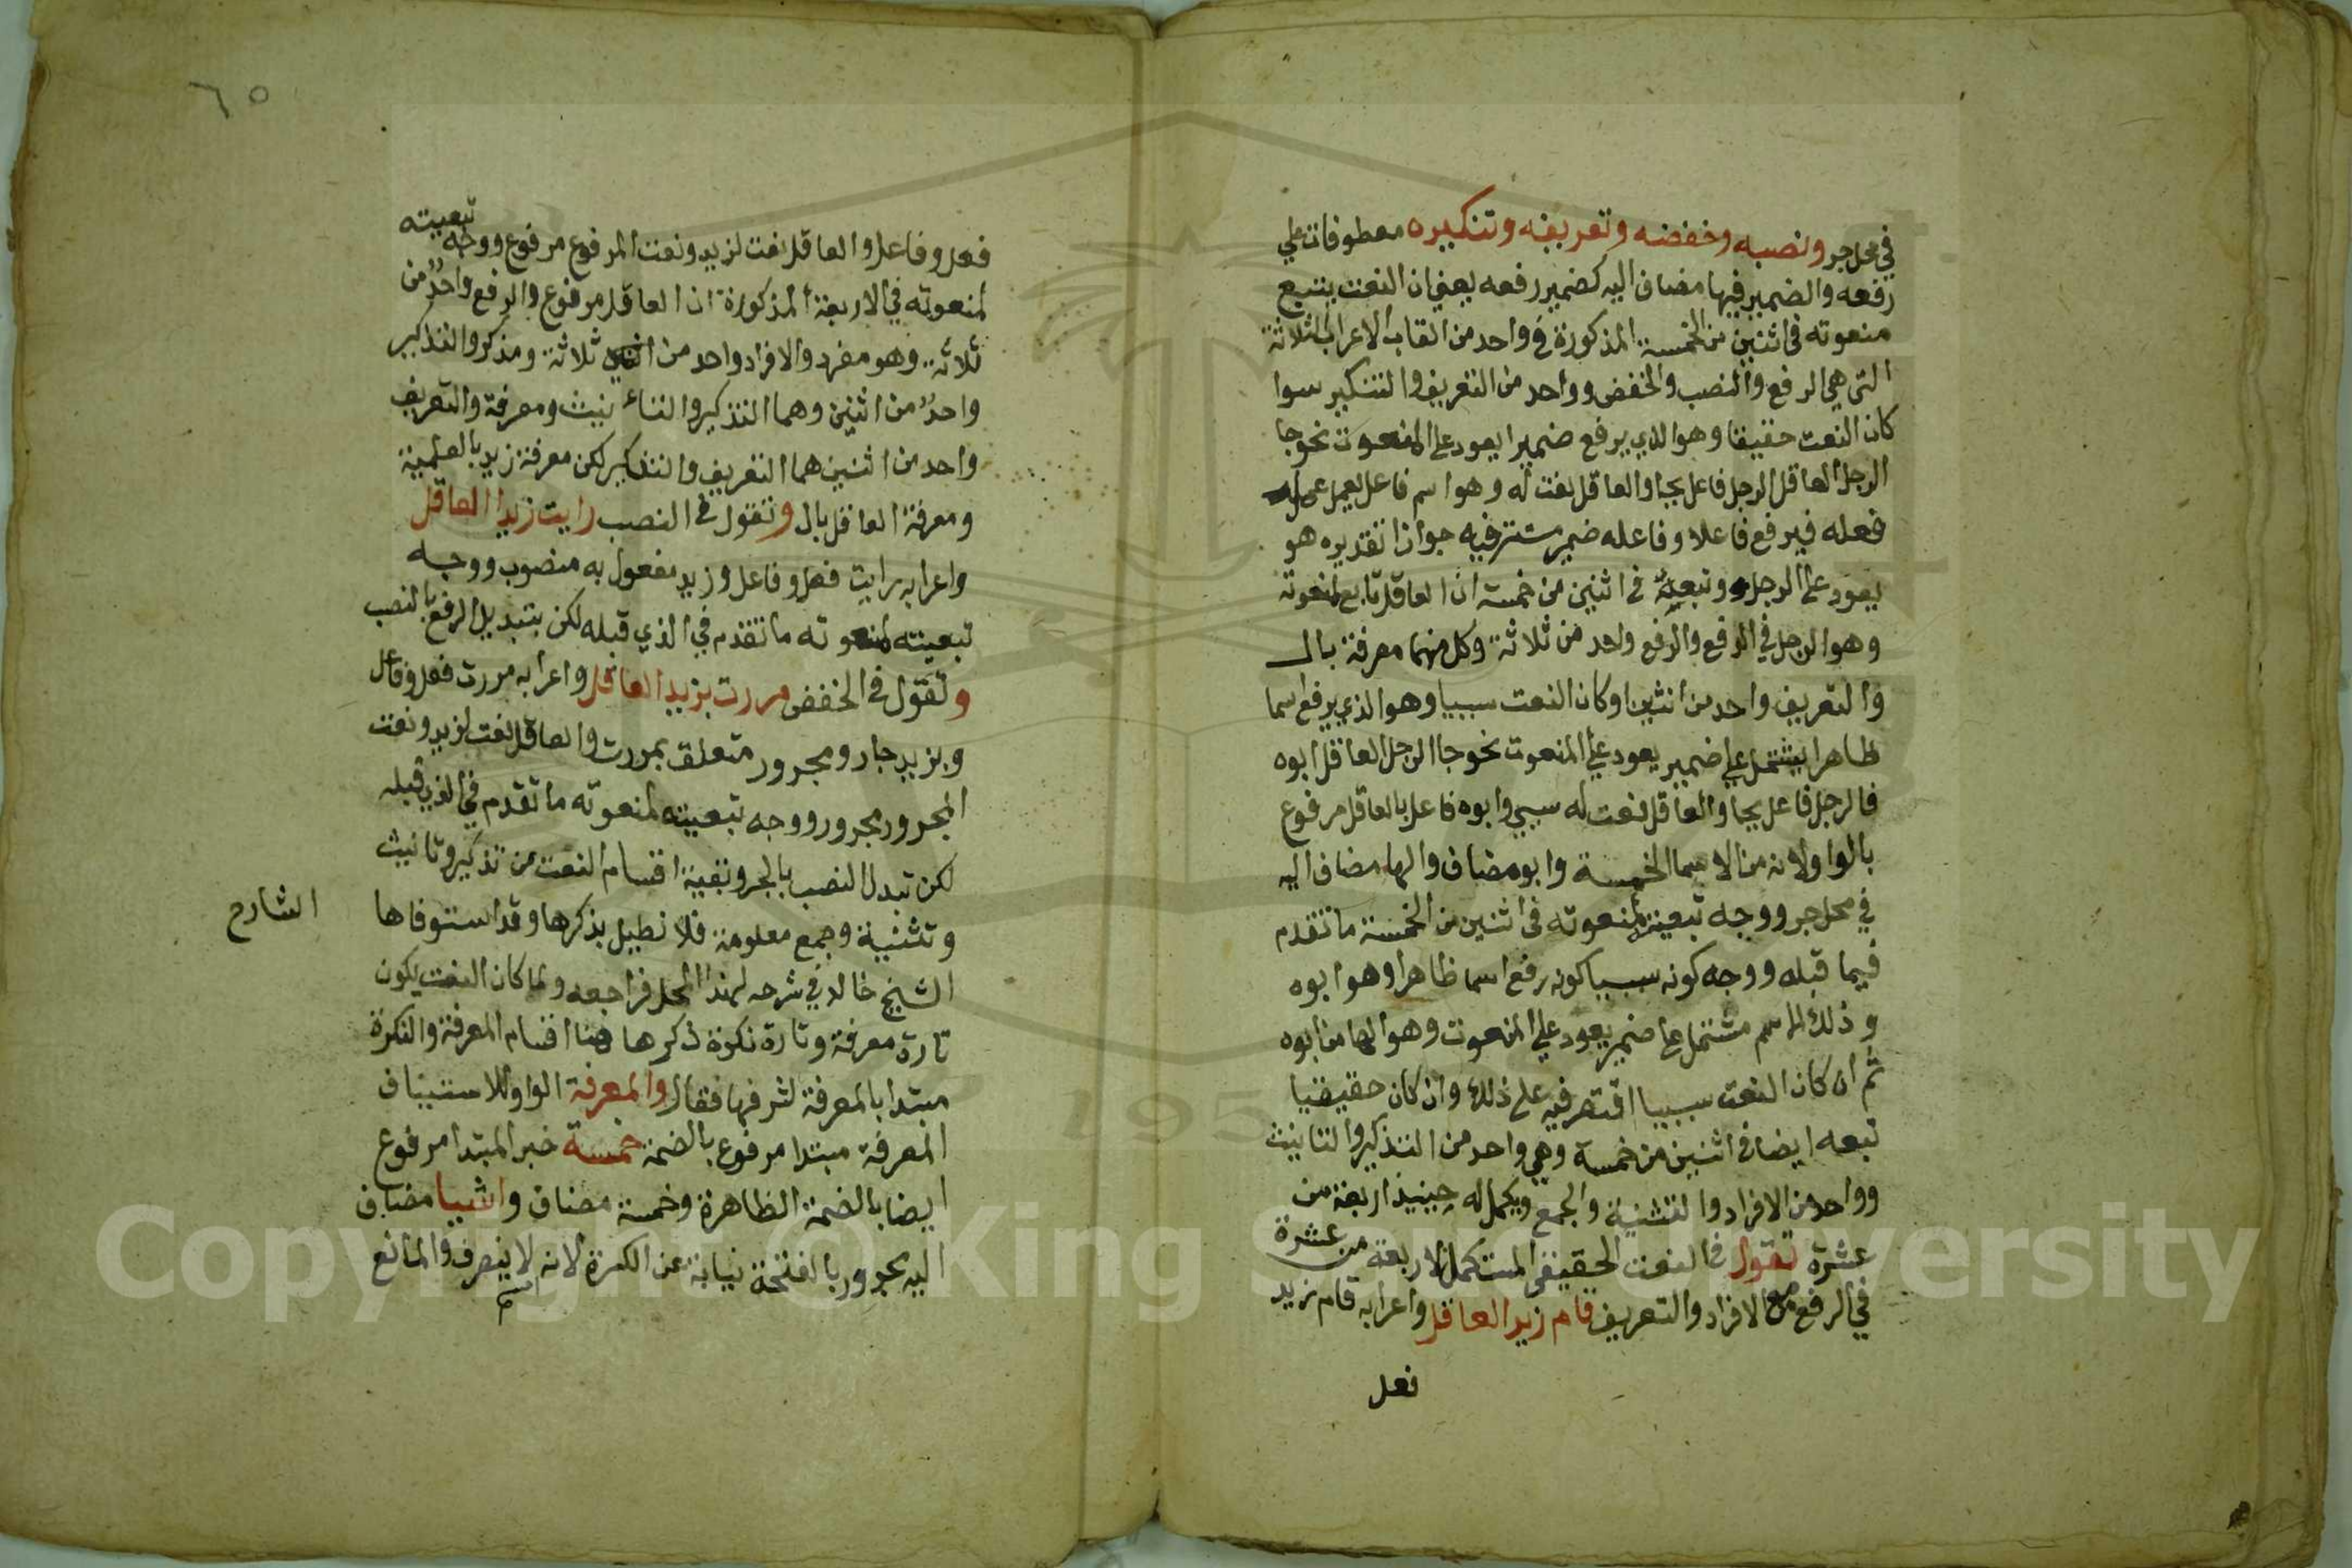 في محل جر ونصبه وخفضه وتعريفه وتنكيره معطوفات علي
رفعه والضمير فيها مضاف اليه كضمير رفعه يعني ان النعت يتبع
منعوته في اثنين من الخمسة المذكورة في واحد من القاب الاعراب الثلاثة
التي هي الرفع والنصب والخفض وواحد من التعريف والتنكير سوا
كان النعت حقيقا وهو الذي يرفع ضميرا يعود علي المنعوت نحو جا
الرجل العاقل الرجل فاعل بجا والعاقل نعت له وهو اسم فاعل يعمل عمل
فعله فيرفع فاعلا وفاعله ضمير مستتر فيه جوازا تقديره هو
يعود علي الرجل وتبعيته في اثنين من خمسة ان العاقل تابع لمنعوته
وهو الرجل في الرفع والرفع واحد من ثلاثة وكل منهما معرفة بال
والتعريف واحد من اثنين او كان النعت سببيا وهو الذي يرفع اسما
ظاهرا يشتمل علي ضمير يعود علي المنعوت نحو جا الرجل العاقل ابوه
فالرجل فاعل بجا والعاقل نعت له سببي وابوه فاعل بالعاقل مرفوع
بالواو لانه من الاسما الخمسة وابو مضاف والها مضاف اليه
في محل جر ووجه تبعيته لمنعوته في اثنين من الخمسة ما تقدم
فيما قبله ووجه كونه سببيا كونه رفع اسما ظاهرا وهو ابوه
وذلك الاسم مشتمل علي ضمير يعود علي المنعوت وهو الها من ابوه
ثم ان كان النعت سببيا اقتصر فيه علي ذلك وان كان حقيقيا
تبعه ايضا في اثنين من خمسة وهي واحد من التذكير والتانيث
وواحد من الافراد والتثنية والجمع ويكمل له حينيذ اربعة من
عشرة تقول في النعت الحقيقي المستكمل لاربعة من عشرة
في الرفع مع الافراد والتعريف قام زيد العاقل واعرابه قام زيد
فعل
٦٥
فعل وفاعل والعاقل نعت لزيد ونعت المرفوع مرفوع ووجه تبعيته
لمنعوته في الاربعة المذكورة ان العاقل مرفوع والرفع واحد من
ثلاثة وهو مفرد والافراد واحد من ثلاثة ومذكر والتذكير
واحد من اثنين وهما التذكير والتانيث ومعرفة والتعريف
واحد من اثنين هما التعريف والتنكير لكن معرفة زيد بالعلمية
ومعرفة العاقل بال وتقول في النصب رايت زيدا العاقل
واعرابه رايت فعل وفاعل وزيد مفعول به منصوب ووجه
تبعيته لمنعوته ما تقدم في الذي قبله لكن بتبديل الرفع بالنصب
وتقول في الخفض مررت بزيد العاقل واعرابه مررت فعل وفاعل
وبزيد جار ومجرور متعلق بمررت والعاقل نعت لزيد ونعت
المجرور مجرور ووجه تبعيته لمنعوته ما تقدم في الذي قبله
لكن تبدل النصب بالجر وبقية اقسام النعت من تذكير وتانيث
وتثنية وجمع معلومة فلا نطيل بذكرها وقد استوفاها
الشارح
الشيخ خالد في شرحه لهذا المحل فراجعه ولما كان النعت يكون
تارة معرفة وتارة نكرة ذكرها هنا اقسام المعرفة والنكرة
مبتدا بالمعرفة لشرفها فقال والمعرفة الواو للاستيناف
المعرفة مبتدا مرفوع بالضمة خمسة خبر المبتدا مرفوع
ايضا بالضمة الظاهرة وخمسة مضاف واشيا مضاف
اليه مجرور بالفتحة نيابة عن الكسرة لانه اسم لا ينصرف والمانع
Copyright © King Saud University
195